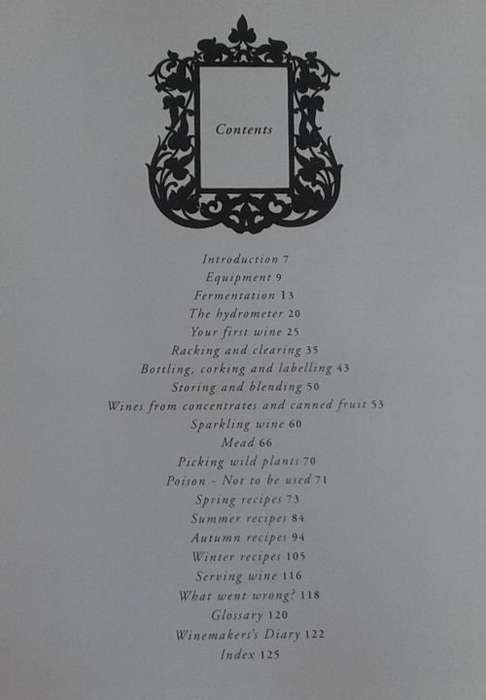 Contents
Introduction 7
Equipment 9
Fermentation 13
The hydrometer 20
Your first wine 25
Racking and clearing 35
Bottling, corking and labelling 43
Storing and blending 50
Wines from concentrates and canned fruit 53
Sparkling wine 60
Mead 66
Picking wild plants 70
Poison - Not to be used 71
Spring recipes 73
Summer recipes 84
Autumn recipes 94
Winter recipes 105
Serving wine 116
What went wrong? 118
Glossary 120
Winemakers's Diary 122
Index 125